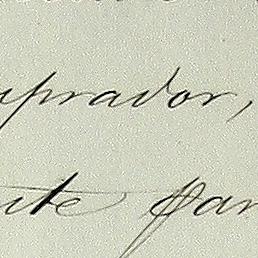 uprador,
ite par